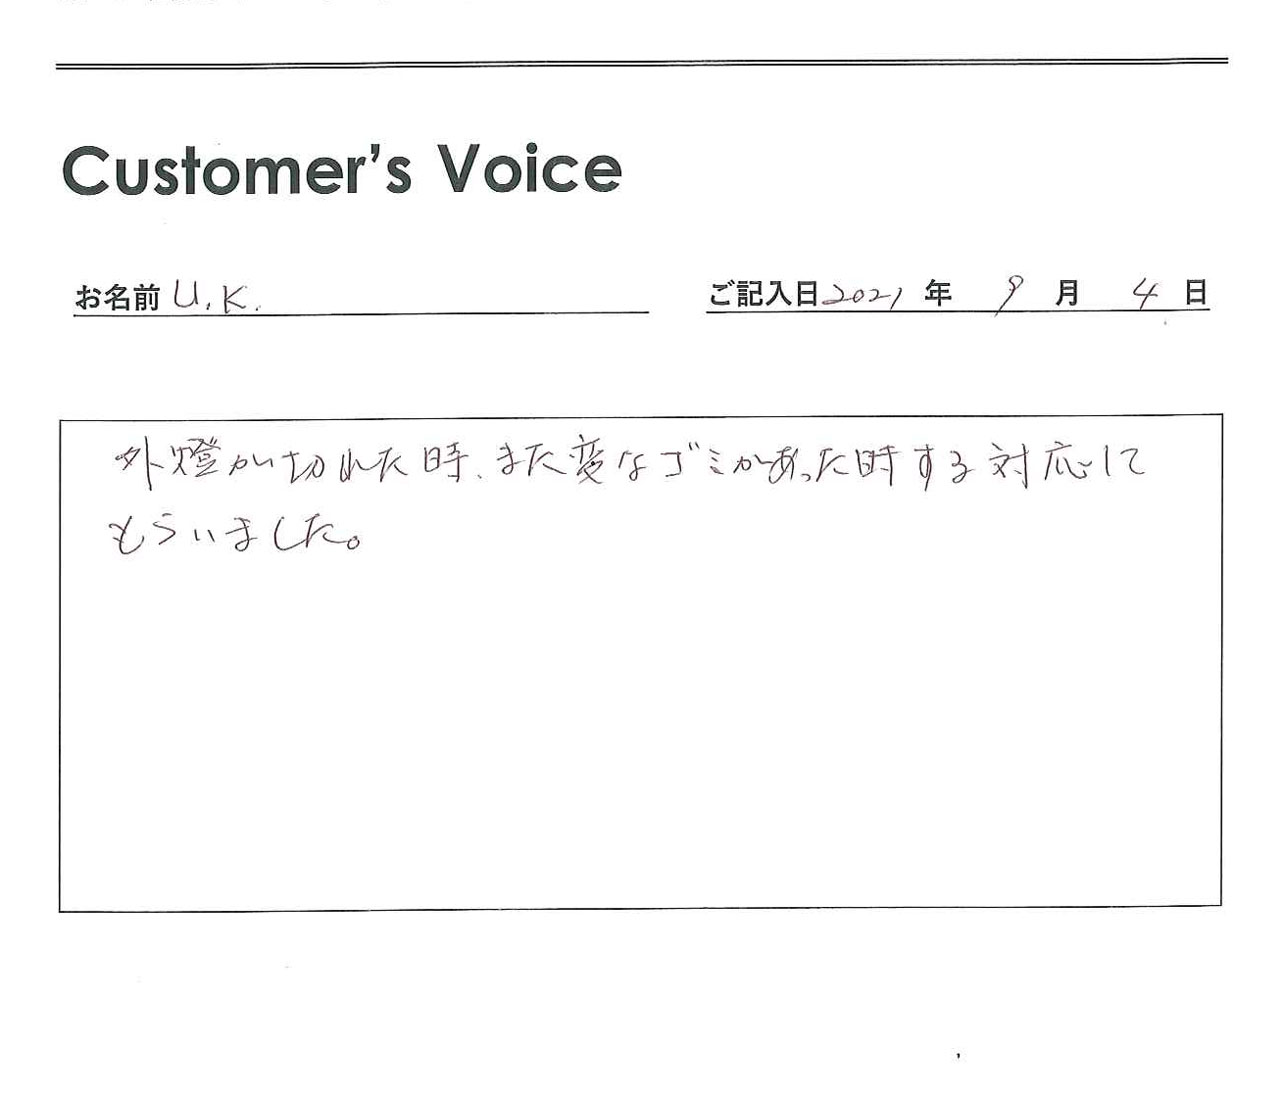 Customer's Voice
お名前 U.K.
ご記入日 2021 年 9 月 4 日
外燈が切れた時、また変なゴミがあった時する対応して
もらいました。